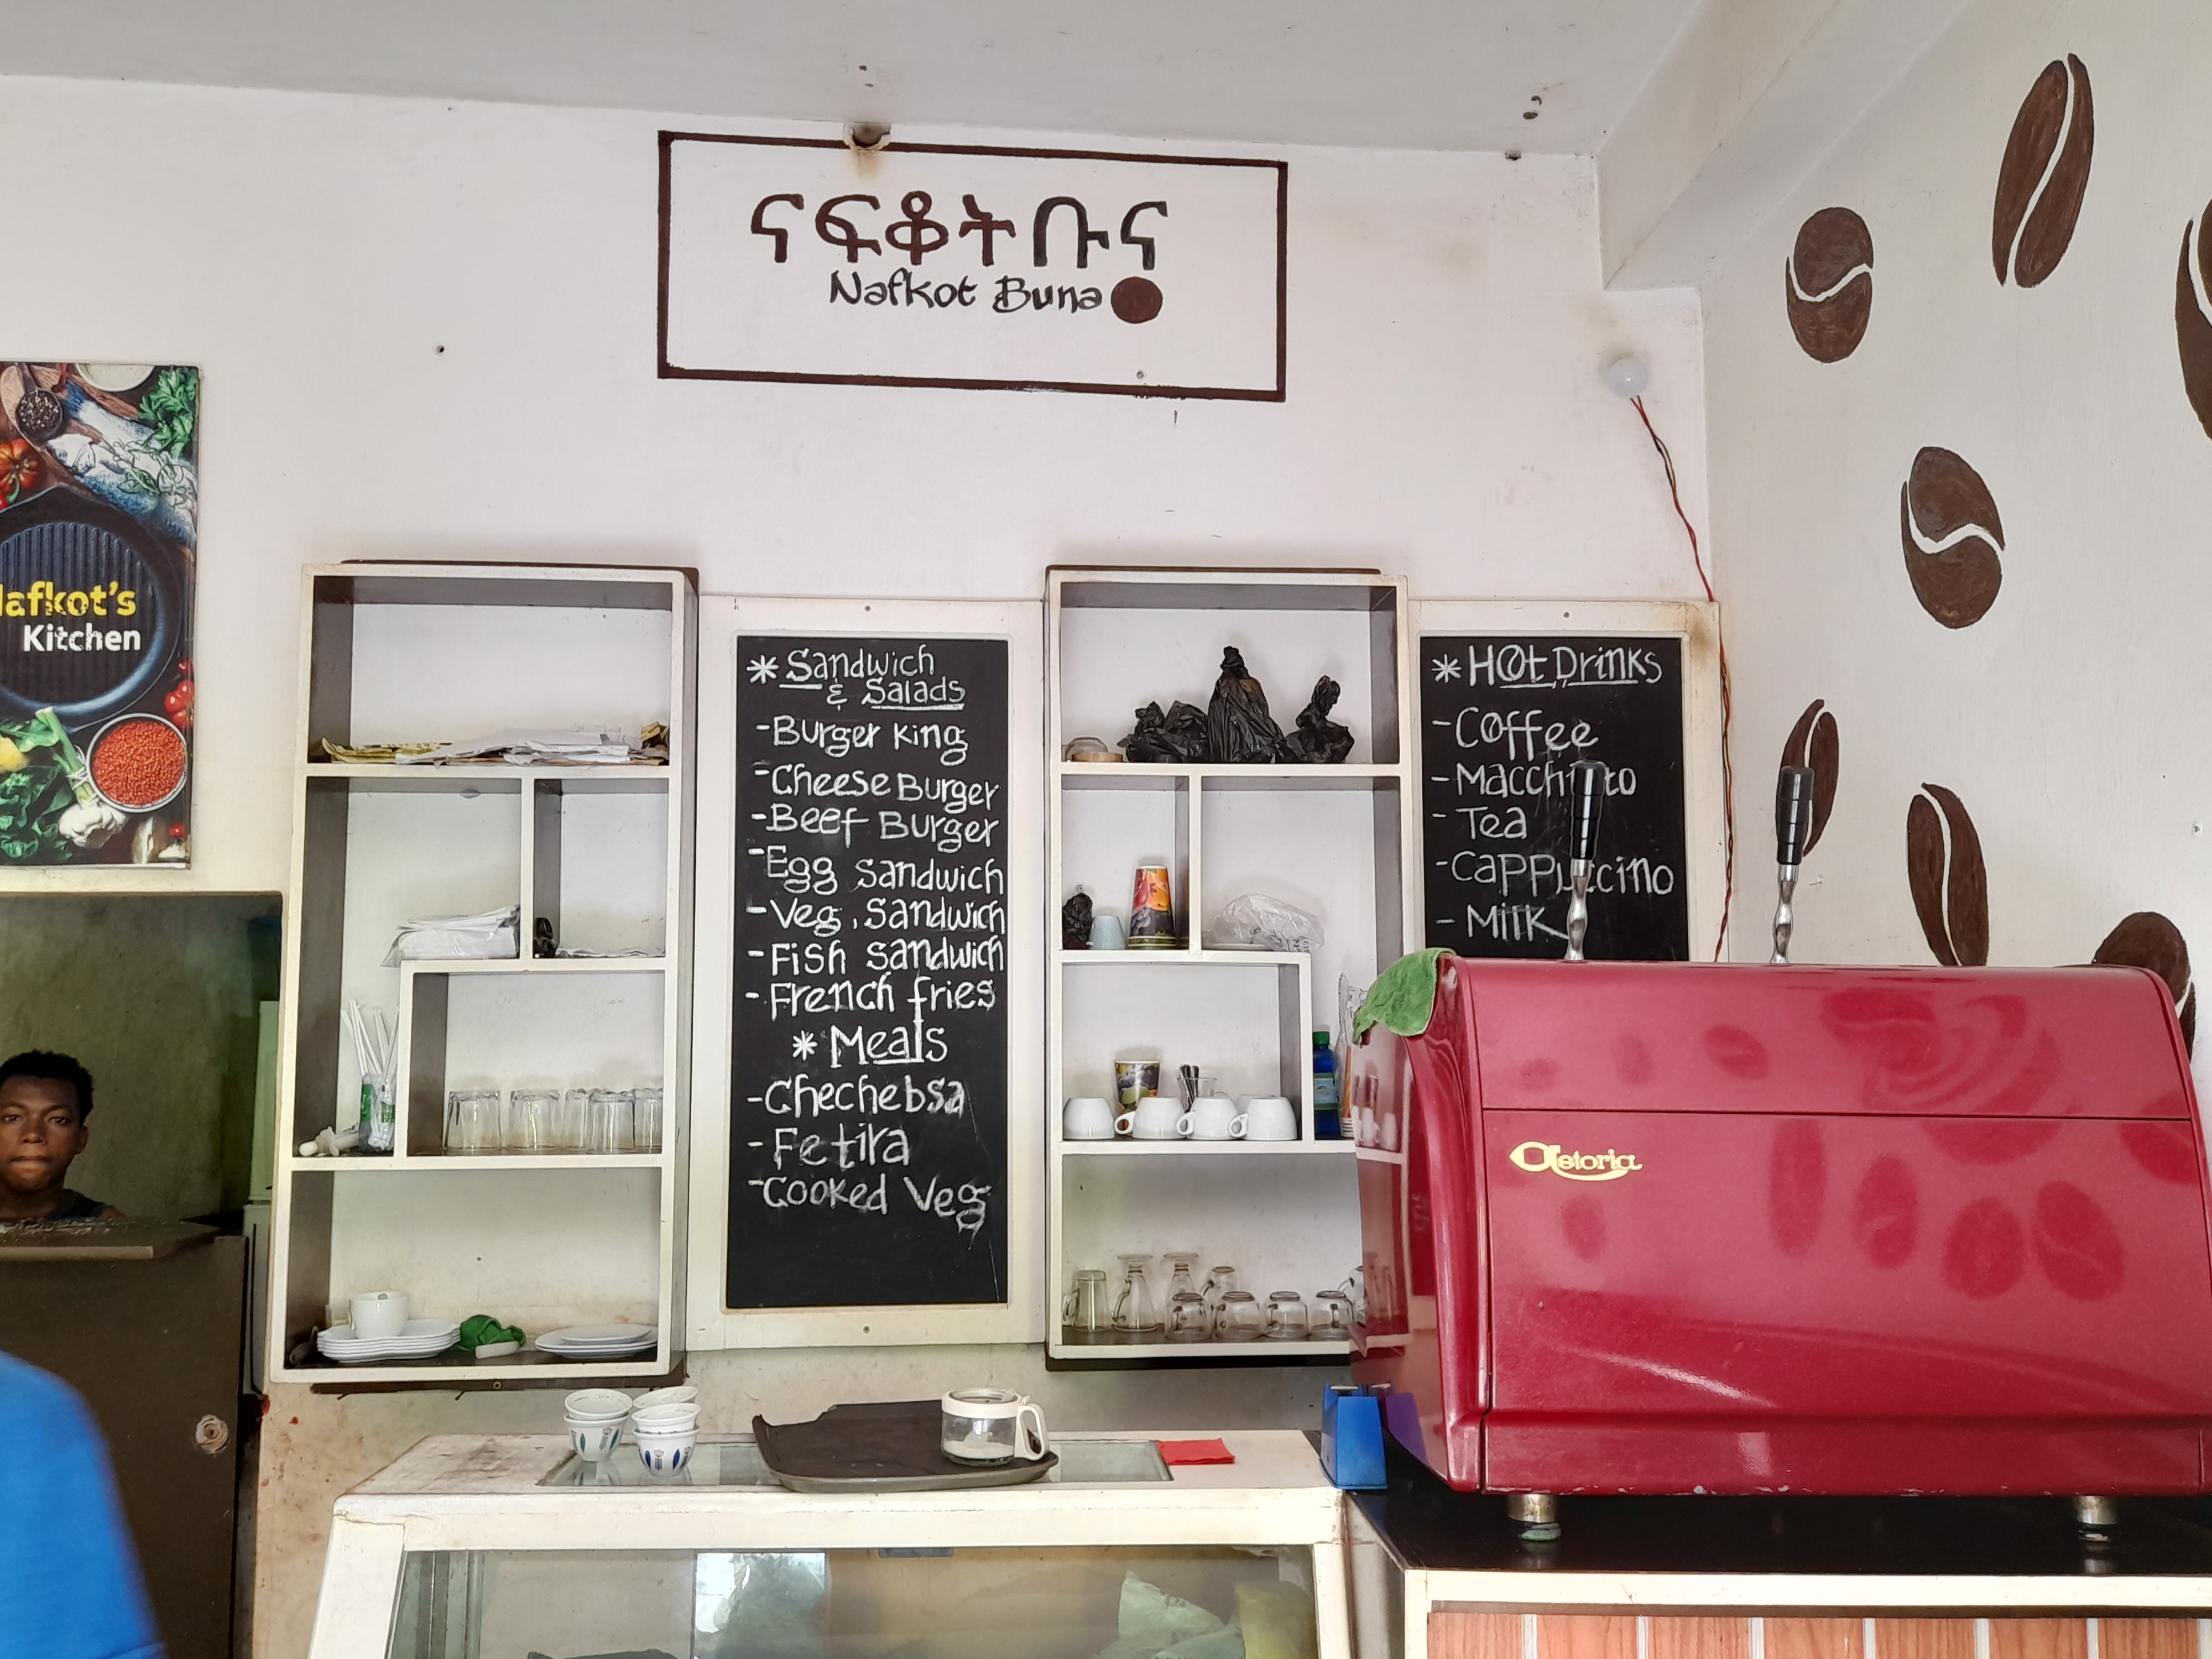 ናፍቆት ቡና
Nafkot Buna
afkot's
Kitchen
* Sandwich
& Salads
- Burger King
- Cheese Burger
- Beef Burger
- Egg Sandwich
- Veg. Sandwich
- Fish Sandwich
- French fries
* Meals
- Chechebsa
- Fetira
- Cooked Veg
* Hot Drinks
- Coffee
- Macchiato
- Tea
- Cappuccino
- Milk
astoria